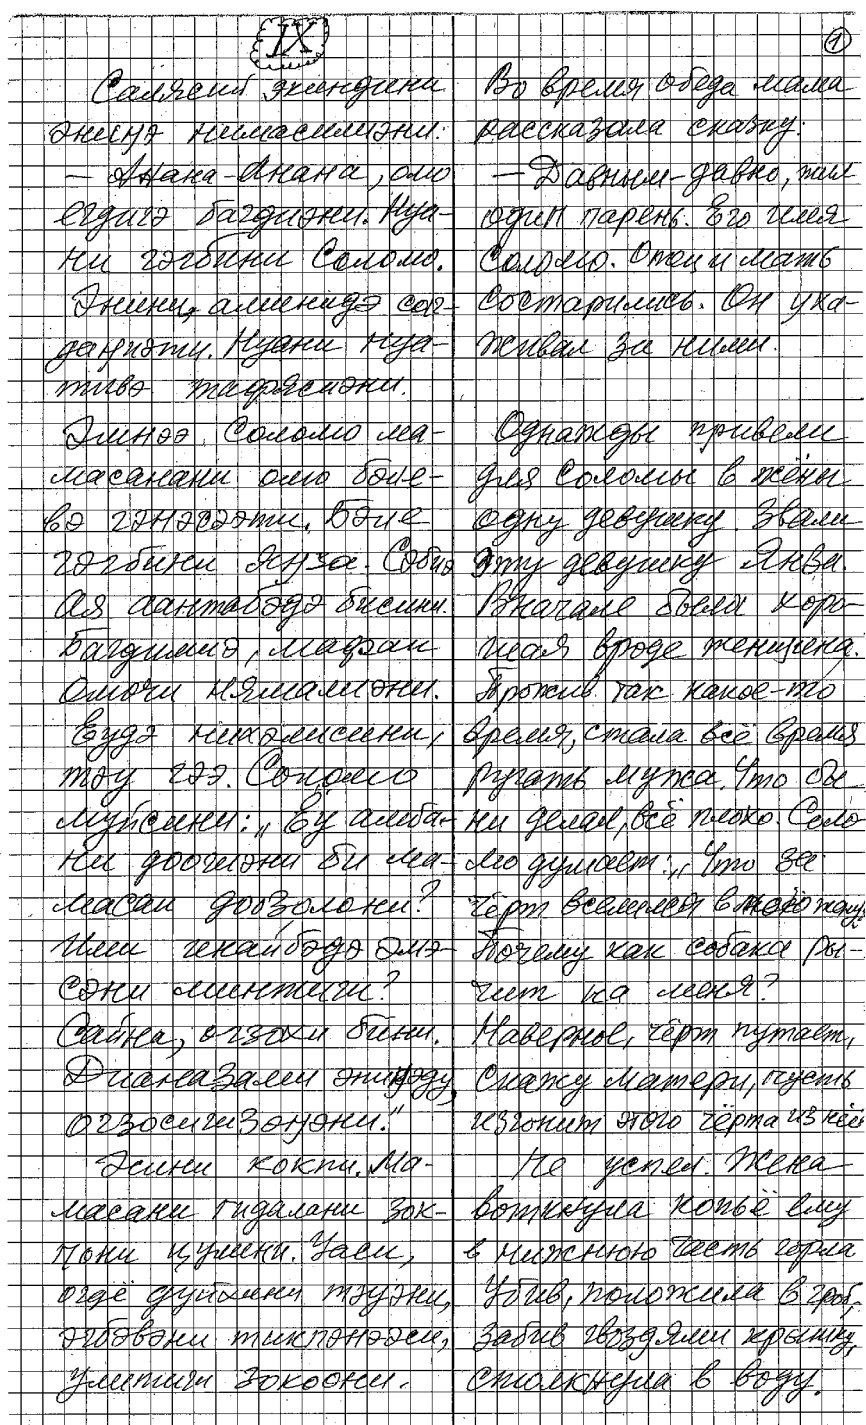 IX
1
Салясий экиндини
энинэ нимасилиэни:
— Анана-Анана, омо
егдигэ багдиэни. Нуа-
ни гэгбини Соломо.
Энини, аминидэ саг-
даӈпэти. Нуани нуа-
тивэ
Эмнээ Соломо ма-
масанани омо бэле-
вэ гэнэсээти. Бэле
гэгбини Янза.
Ая аантабэдэ бисини.
Багдимиэ, мафаи
омочи нямалиэни.
Еудэ нихэмисини,
тэу гээ. Соломо
муйсини: „Еу амба-
ни доогиэни би ма-
масаи доозолони?
Или инайбэдэ эмэ-
сэни минтиги?
Сайна, огзохи бини.
Дианазами энинэду,
огзосигизэӈэни."
Эсини кокпи. Ма-
масани гидалани зок-
пони цумини. Уаси,
тэуэни,
Улитиги зокоони.
Во время обеда мама
рассказала сказку:
— Давным-давно, жил
один парень. Его имя
Соломо. Отец и мать
состарились. Он уха-
живал за ними.
Однажды привели
для Соломы в жёны
одну девушку. Звали
эту девушку Янва.
Вначале была хоро-
шая вроде женщина.
Прожив так какое-то
время, стала всё время
ругать мужа. Что бы
ни делал, всё плохо. Соло-
мо думает: „Что за
чёрт вселился в мою жену
Почему как собака ры-
чит на меня?
Наверное, чёрт путает,
Скажу матери, пусть
изгонит этого чёрта из неё
Не успел. Жена
воткнула копьё ему
в нижнюю часть горла
Убив, положила в гроб,
забив гвоздями крышку,
столкнула в воду.